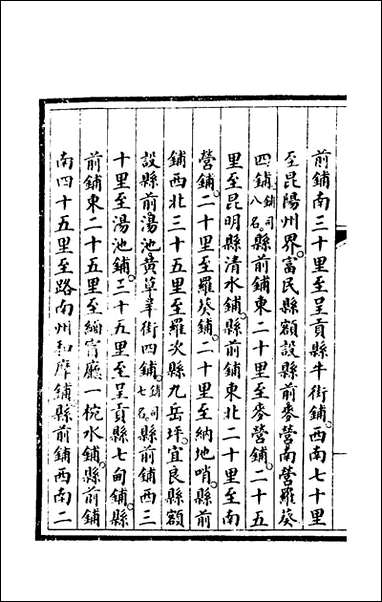 前鋪南三十里至呈貢縣牛街鋪西南七十里
至昆陽州界富民縣額設縣前麥營南營羅葵
四鋪鋪司八名縣前鋪東二十里至麥營鋪二十五
里至昆明縣清水鋪縣前鋪東北二十里至南
營鋪二十里至羅葵鋪二十里至納地哨縣前
鋪西北三十五里至羅次縣九岳坪宜良縣額
設縣前湯池黃草草街四鋪鋪司七名縣前鋪西三
十里至湯池鋪二十五里至呈貢縣七甸鋪縣
前鋪東二十五里至緬甯廳一椀水鋪縣前鋪
南四十五里至路南州和摩鋪縣前鋪西南二